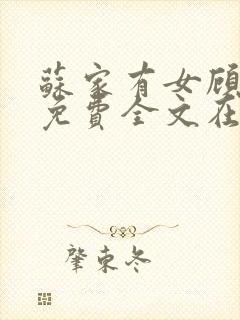 蘇家有女顾
免費全文在
肇東冬